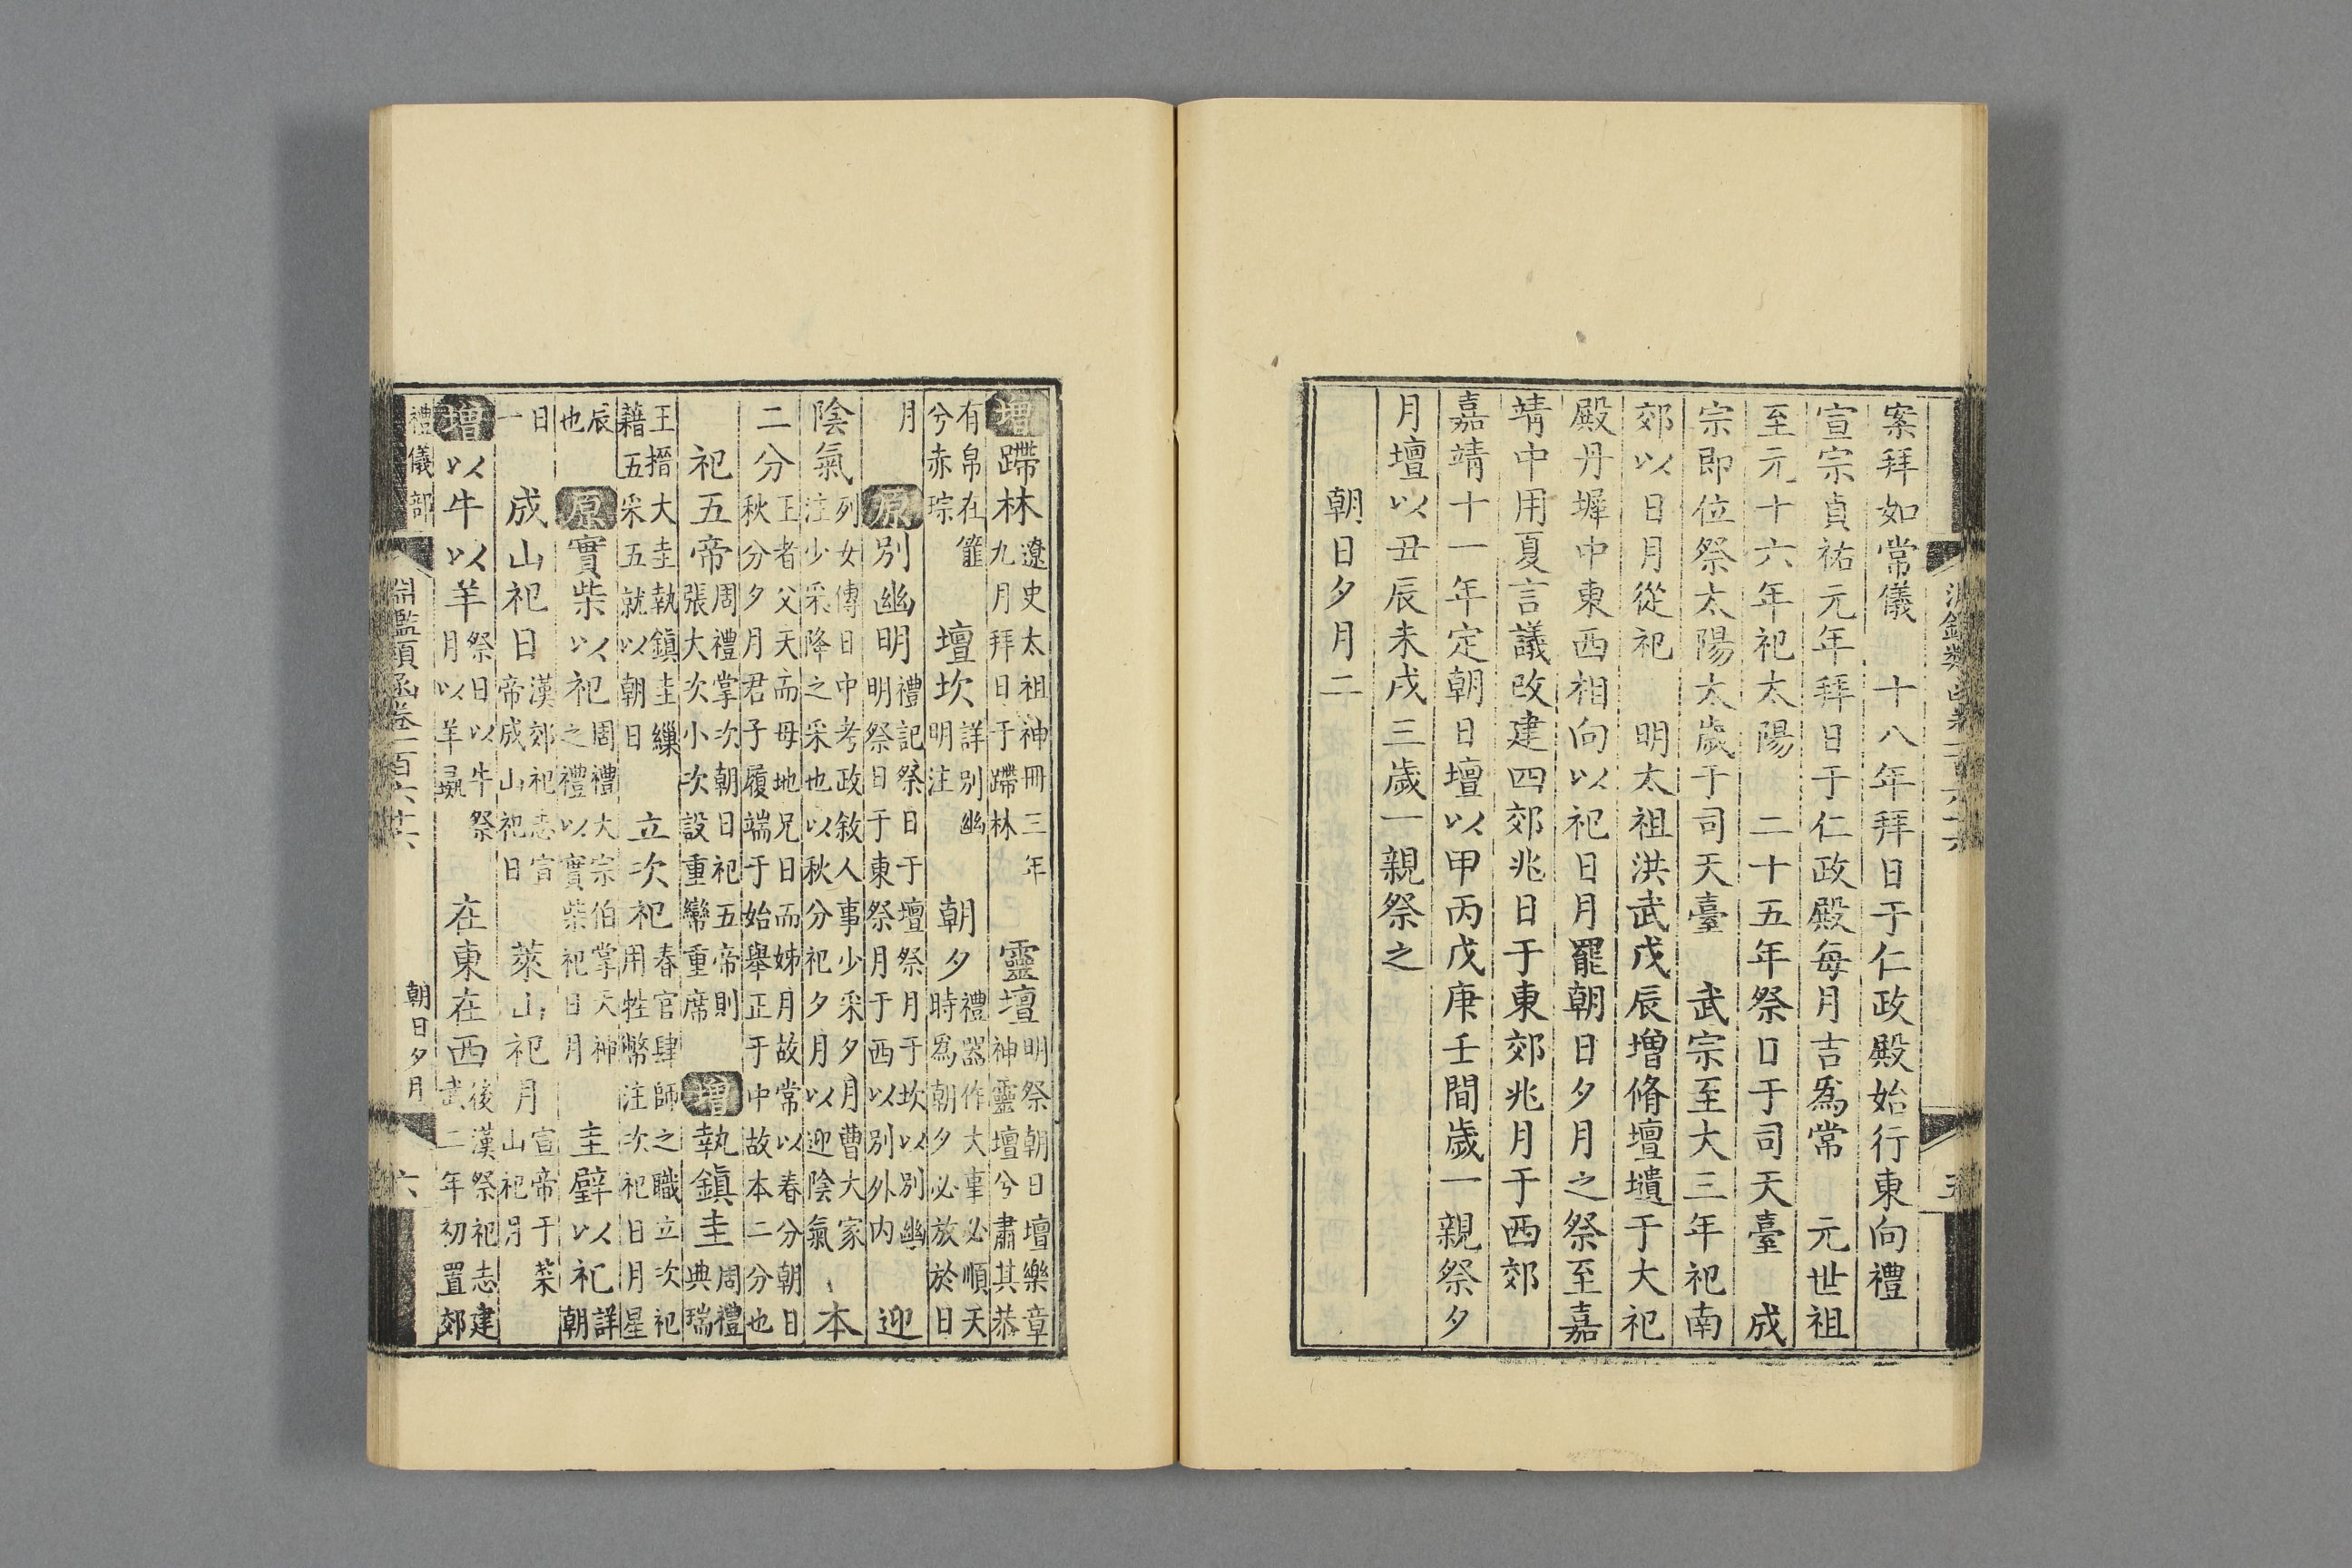 淵鑑類函卷一百六十六 五
案拜如常儀 十八年拜日于仁政殿始行東向禮
宣宗貞祐元年拜日于仁政殿每月吉爲常 元世祖
至元十六年祀太陽 二十五年祭日于司天臺 成
宗即位祭太陽太歲于司天臺 武宗至大三年祀南
郊以日月從祀 明太祖洪武戊辰增脩壇壝于大祀
殿丹墀中東西相向以祀日月罷朝日夕月之祭至嘉
靖中用夏言議改建四郊兆日于東郊兆月于西郊
嘉靖十一年定朝日壇以甲丙戊庚壬間歲一親祭夕
月壇以丑辰未戌三歲一親祭之
朝日夕月二
增蹛林遼史太祖神冊三年九月拜日于蹛林 靈壇明祭朝日壇樂章神靈壇兮肅其恭
有帛在篚兮赤琮 壇坎詳別幽明注 朝夕禮器作大事必順天時爲朝夕必放於日
月 原別幽明禮記祭日于壇祭月于坎以別幽明祭日于東祭月于西以別外内 迎
陰氣列女傳日中考政敘人事少采夕月曹大家注少采降之采也以秋分祀夕月以迎陰氣 本
二分正者父天而母地兄日而姊月故常以春分朝日秋分夕月君子履端于始舉正于中故本二分也
祀五帝周禮掌次朝日祀五帝則張大次小次設重帟重席 增執鎮圭周禮典瑞
王搢大圭執鎮圭繅藉五采五就以朝日 立次祀春官肆師之職立次祀用牲幣注次祀日月星
辰也 原實柴以祀周禮大宗伯掌天神之禮以實柴祀日月 圭璧以祀詳朝
日一 成山祀日漢郊祀志宣帝成山祀日 萊山祀月宣帝于萊山祀月
增以牛以羊祭日以牛祭月以羊彘 在東在西後漢祭祀志建武二年初置郊
禮儀部 淵鑑類函卷一百六十六 朝日夕月 六